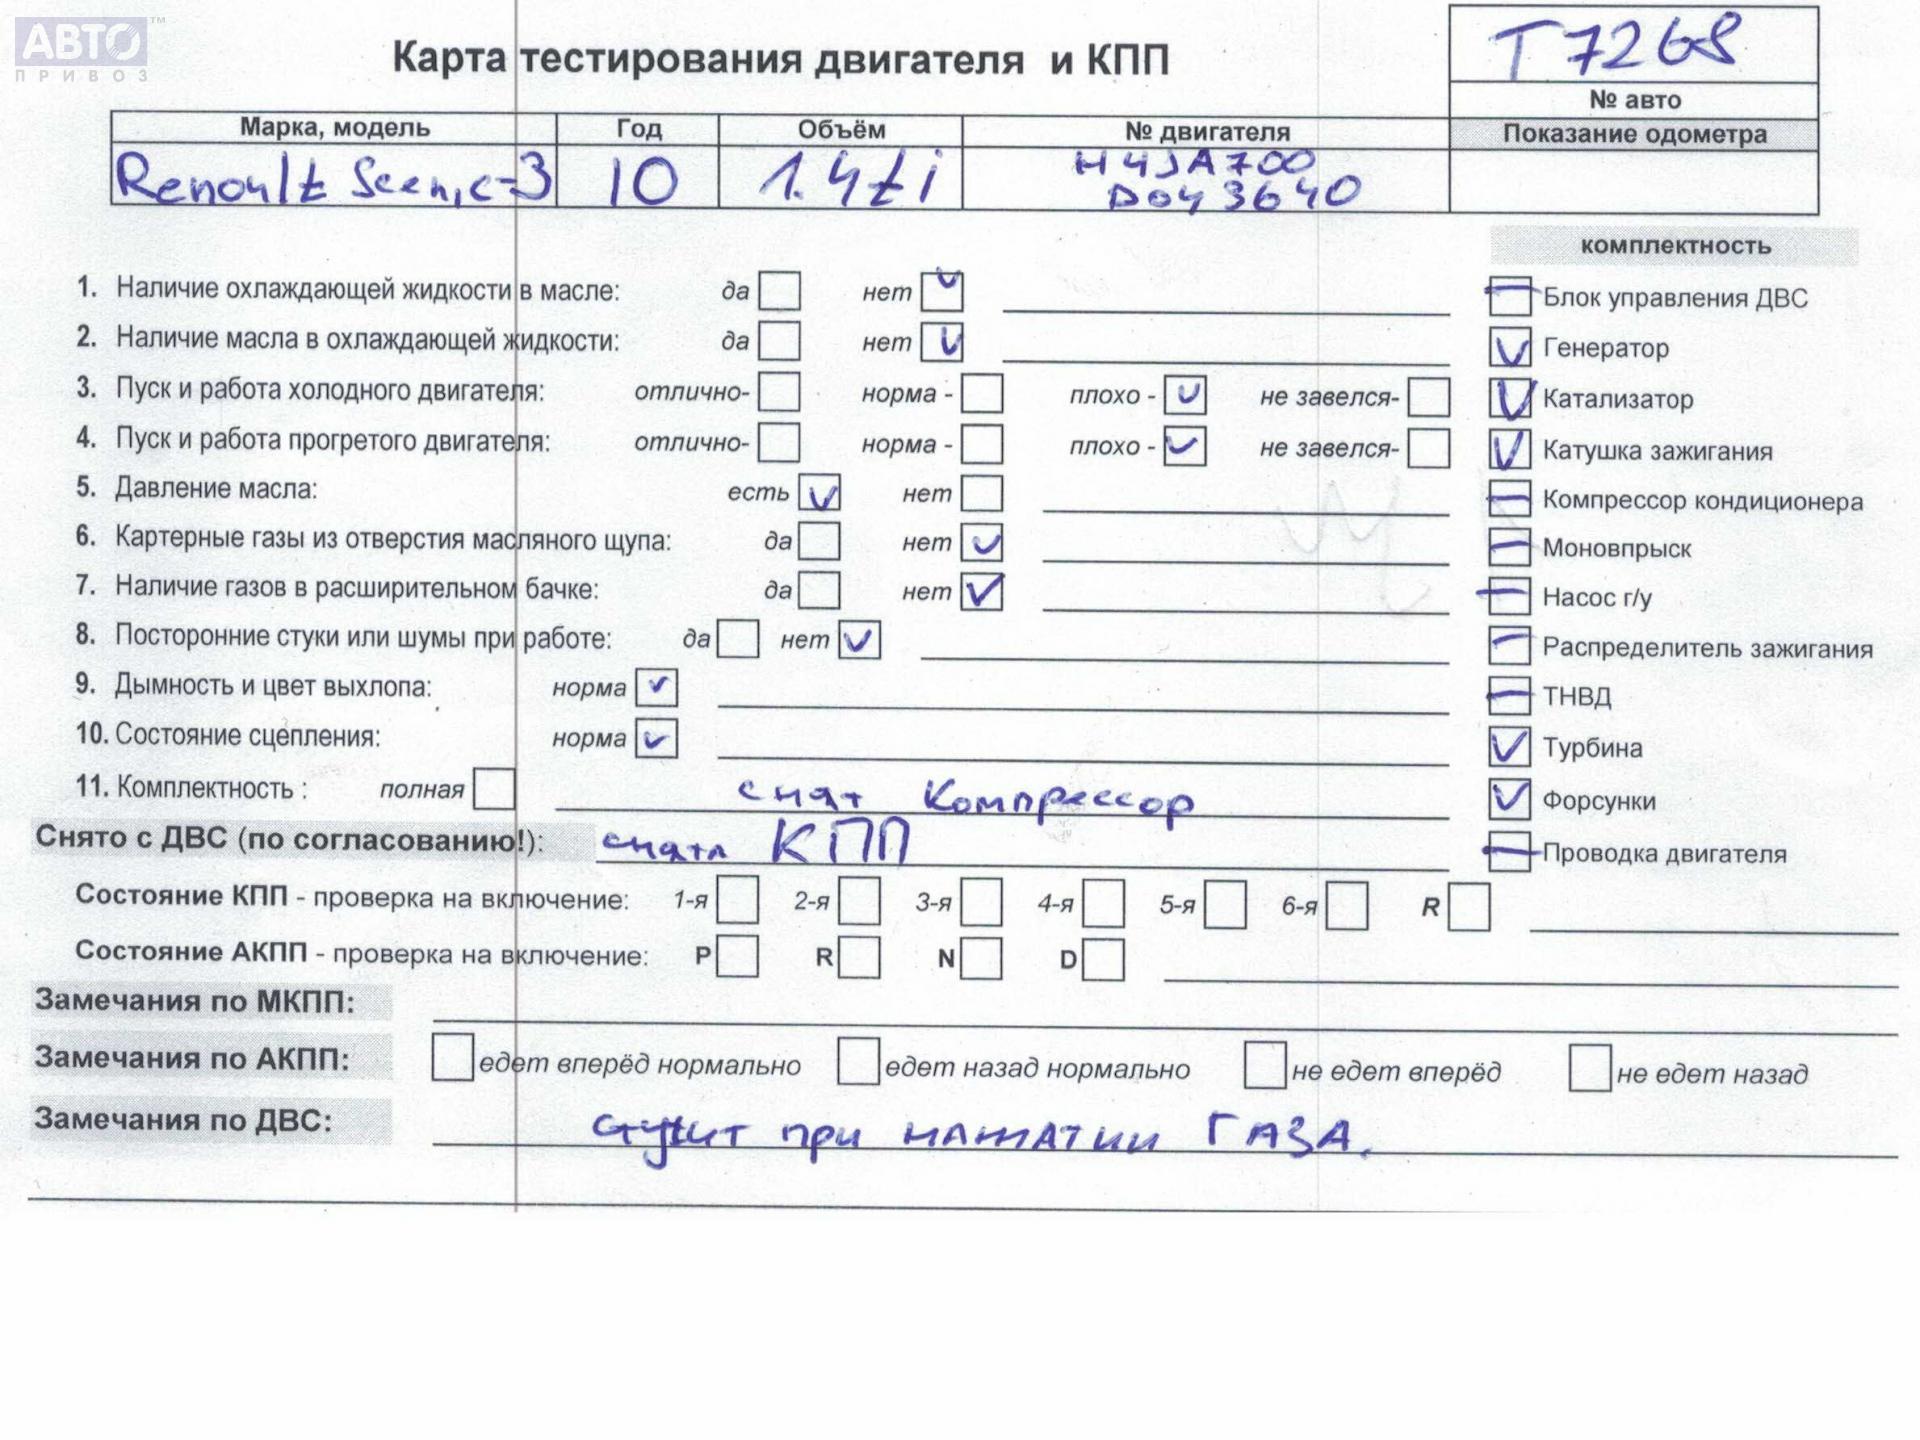 АВТО™
ПРИВОЗ
Карта тестирования двигателя и КПП
T7268
№ авто
Марка, модель Год Объём № двигателя Показание одометра
Renoult Scenic-3 10 1.4ti H4JA700
D043640
комплектность
1. Наличие охлаждающей жидкости в масле: да нет
Блок управления ДВС
2. Наличие масла в охлаждающей жидкости: да нет
Генератор
3. Пуск и работа холодного двигателя: отлично- норма - плохо - не завелся-
Катализатор
4. Пуск и работа прогретого двигателя: отлично- норма - плохо - не завелся-
Катушка зажигания
5. Давление масла: есть нет
Компрессор кондиционера
6. Картерные газы из отверстия масляного щупа: да нет
Моновпрыск
7. Наличие газов в расширительном бачке: да нет
Насос г/у
8. Посторонние стуки или шумы при работе: да нет
Распределитель зажигания
9. Дымность и цвет выхлопа: норма
ТНВД
10. Состояние сцепления: норма
Турбина
11. Комплектность : полная снят Компрессор
Форсунки
Снято с ДВС (по согласованию!): снята КПП
Проводка двигателя
Состояние КПП - проверка на включение: 1-я 2-я 3-я 4-я 5-я 6-я R
Состояние АКПП - проверка на включение: P R N D
Замечания по МКПП:
Замечания по АКПП: едет вперёд нормально едет назад нормально не едет вперёд не едет назад
Замечания по ДВС: при нажатии ГАЗА.